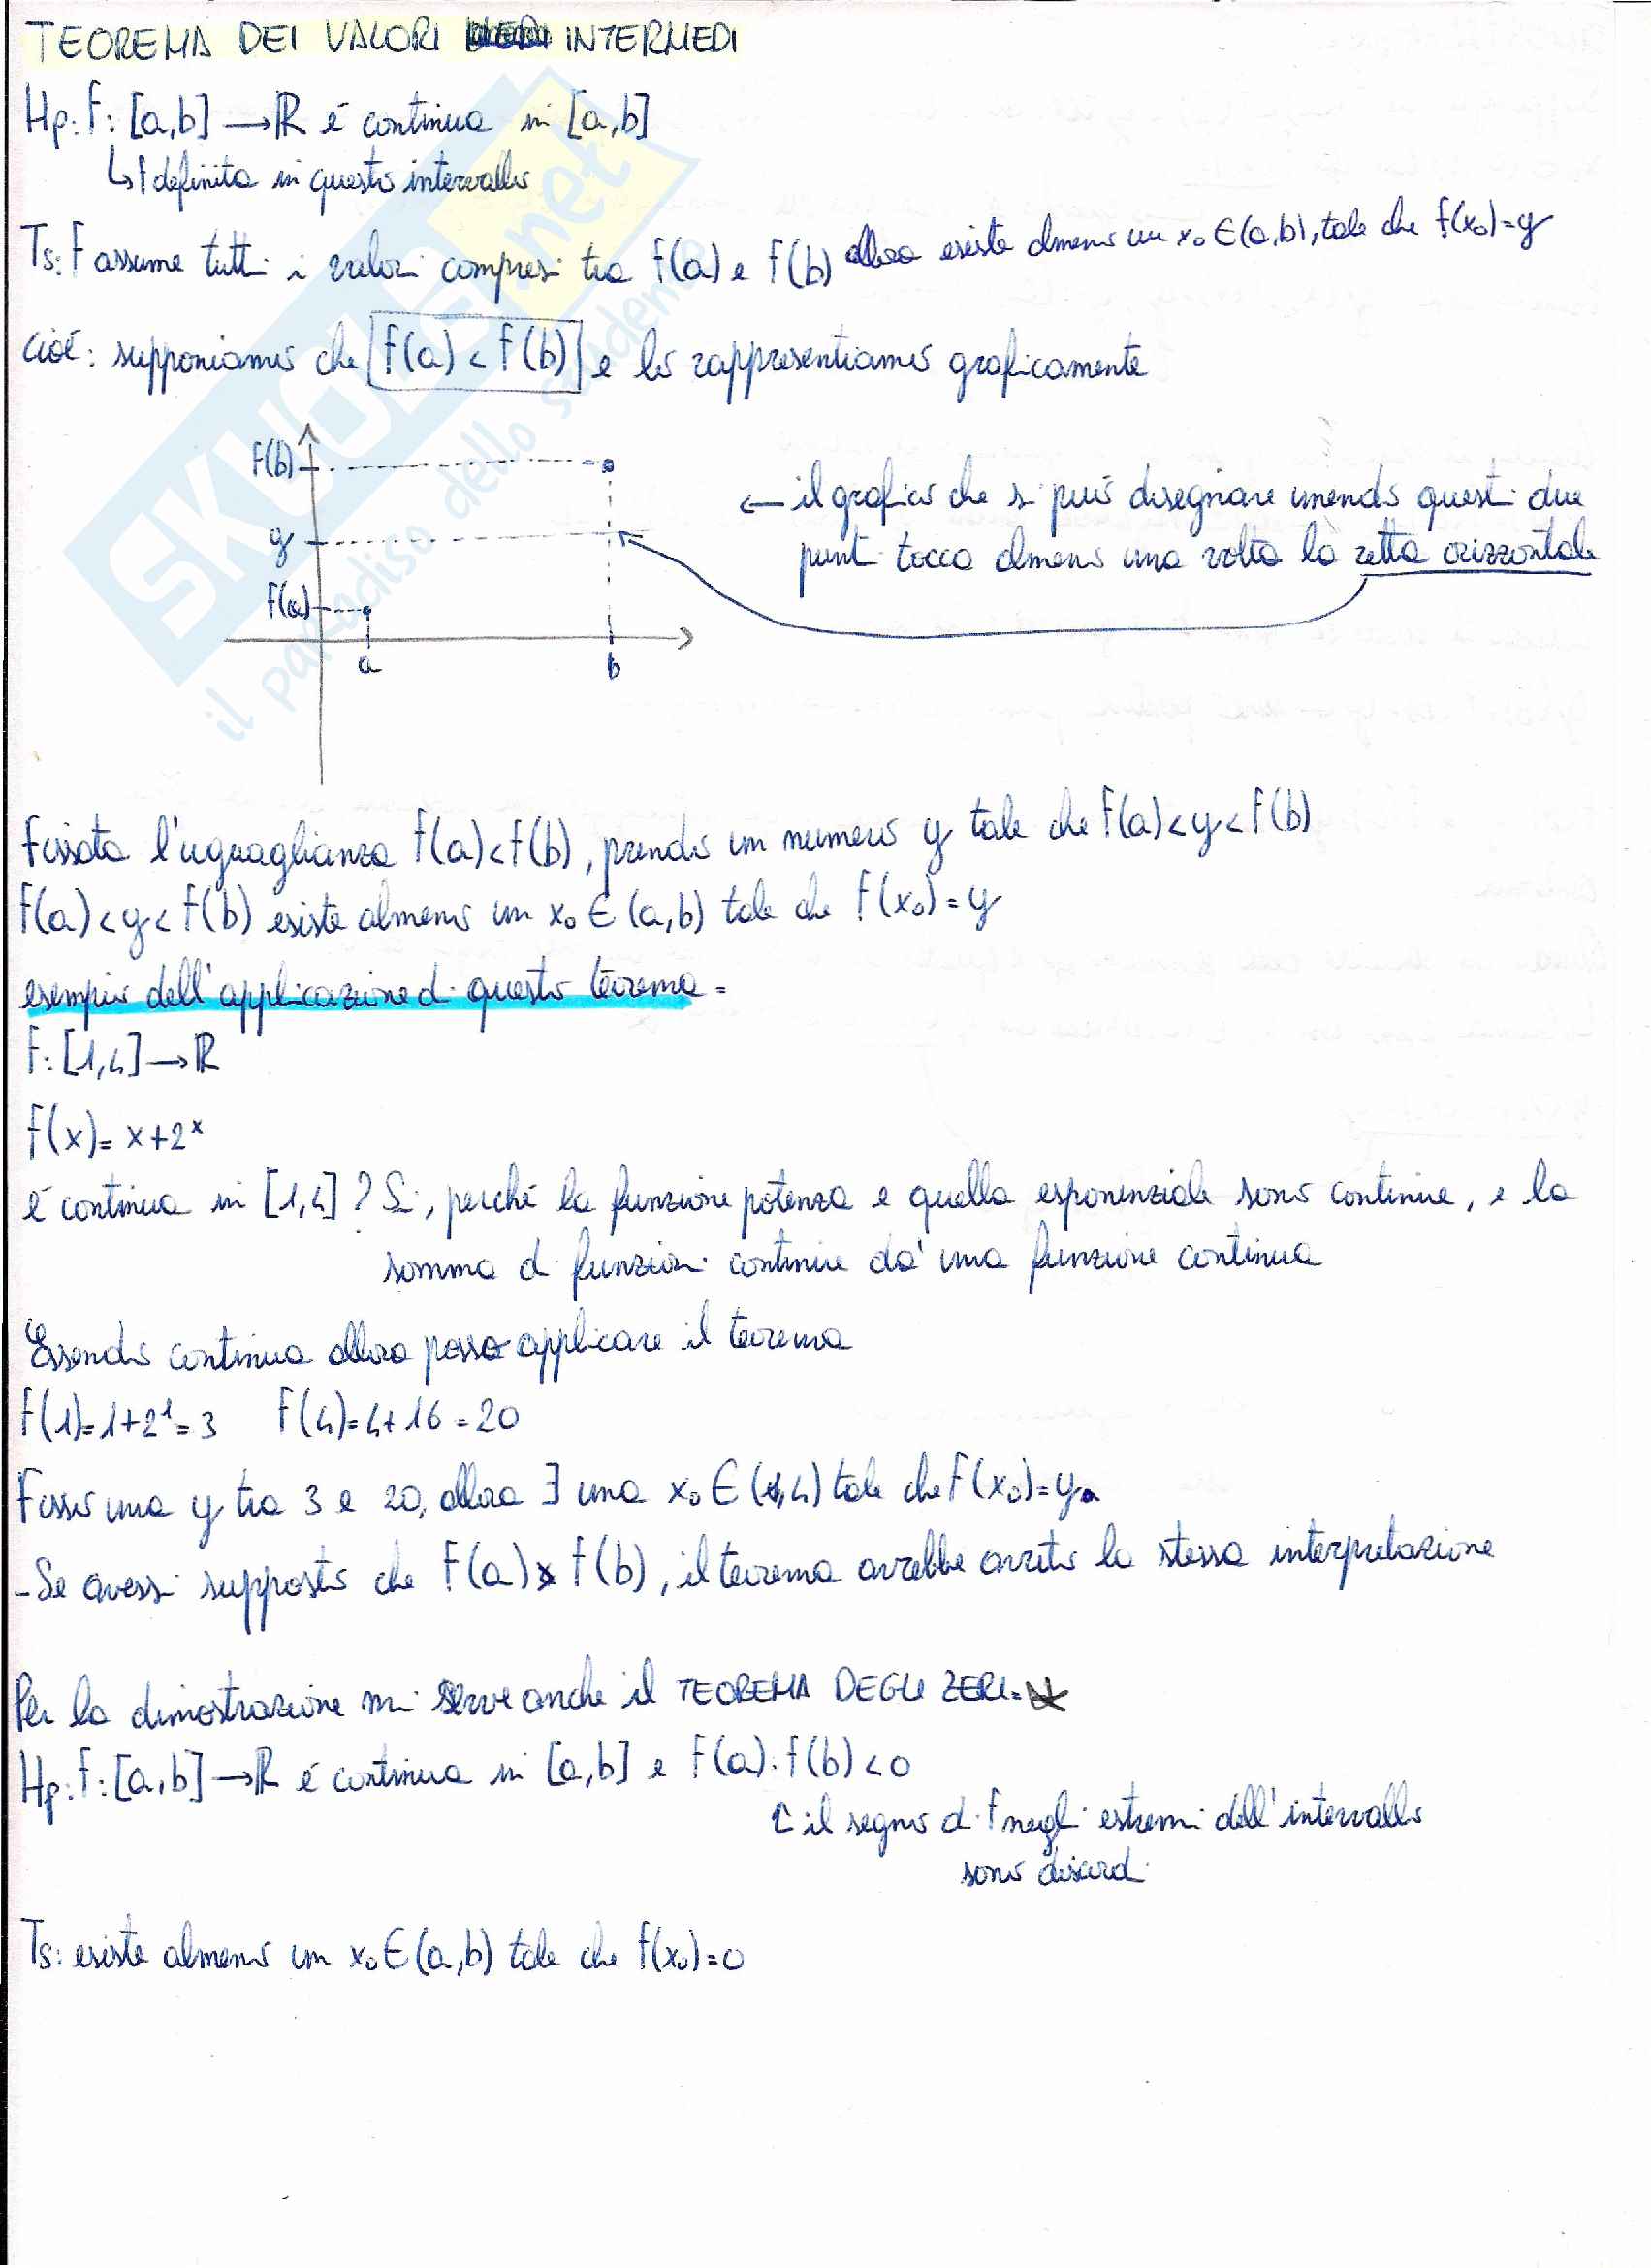 TEOREMA DEI VALORI INTERMEDI
Hp: f: [a,b] → ℝ é continua in [a,b]
↳ f definita in questo intervallo
Ts: f assume tutti i valori compresi tra f(a) e f(b) allora esiste almeno un x₀ ∈ (a,b), tale che f(x₀)=y
cioé: supponiamo che f(a) < f(b) e lo rappresentiamo graficamente
f(b)
y
f(a)
a
b
← il grafico che si può disegnare unendo questi due
punti tocca almeno una volta la retta orizzontale
Fissata l'uguaglianza f(a)<f(b), prendo un numero y tale che f(a)<y<f(b)
f(a)<y<f(b) esiste almeno un x₀ ∈ (a,b) tale che f(x₀)=y
esempio dell'applicazione di questo teorema =
f: [1,4] → ℝ
f(x)= x+2ˣ
é continua in [1,4]? Sì, perché la funzione potenza e quella esponenziale sono continue, e la
somma di funzioni continue da' una funzione continua
Essendo continua allora posso applicare il teorema
f(1)=1+2¹=3 f(4)=4+16=20
Fisso una y tra 3 e 20, allora ∃ una x₀ ∈ (1,4) tale che f(x₀)=y.
- Se avessi supposto che f(a) > f(b), il teorema avrebbe avuto la stessa interpretazione
Per la dimostrazione mi serve anche il TEOREMA DEGLI ZERI=
Hp: f: [a,b] → ℝ é continua in [a,b] e f(a)·f(b)<0
↑ il segno di f negli estremi dell'intervallo
sono discordi
Ts: esiste almeno un x₀ ∈ (a,b) tale che f(x₀)=0
SKUOLA.net
il paradiso dello studente